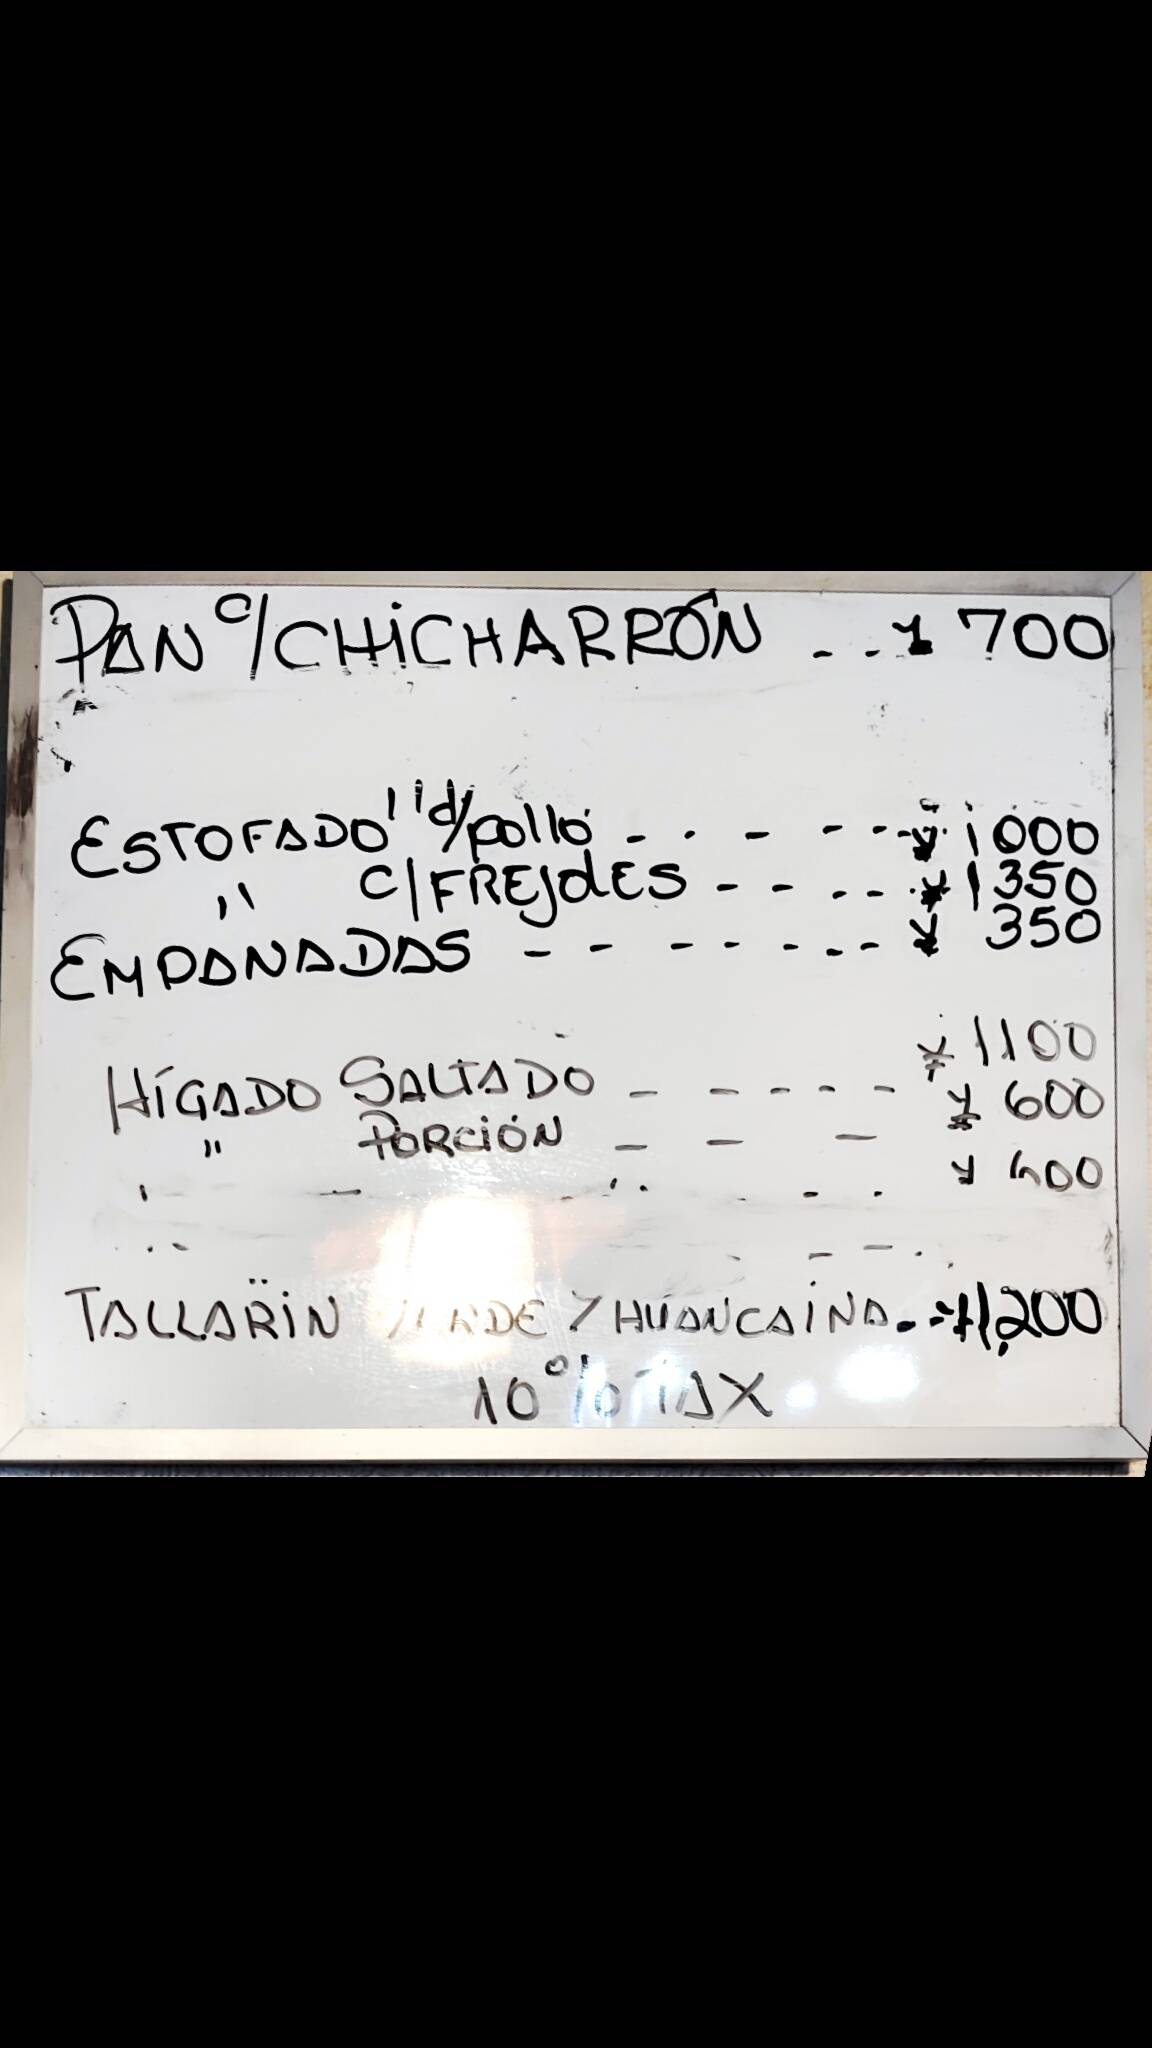 PAN c/CHICHARRÓN - - - ¥ 700
ESTOFADO'' d/pollo - - - - - - ¥ 1000
'' c/FREJOLES - - - - - ¥ 1350
EMPANADAS - - - - - - - - ¥ 350
HÍGADO SALTADO - - - - - - ¥ 1100
'' PORCIÓN - - - ¥ 600
¥
TALLARÍN Y HUANCAÍNA - - ¥1,200
10% TAX